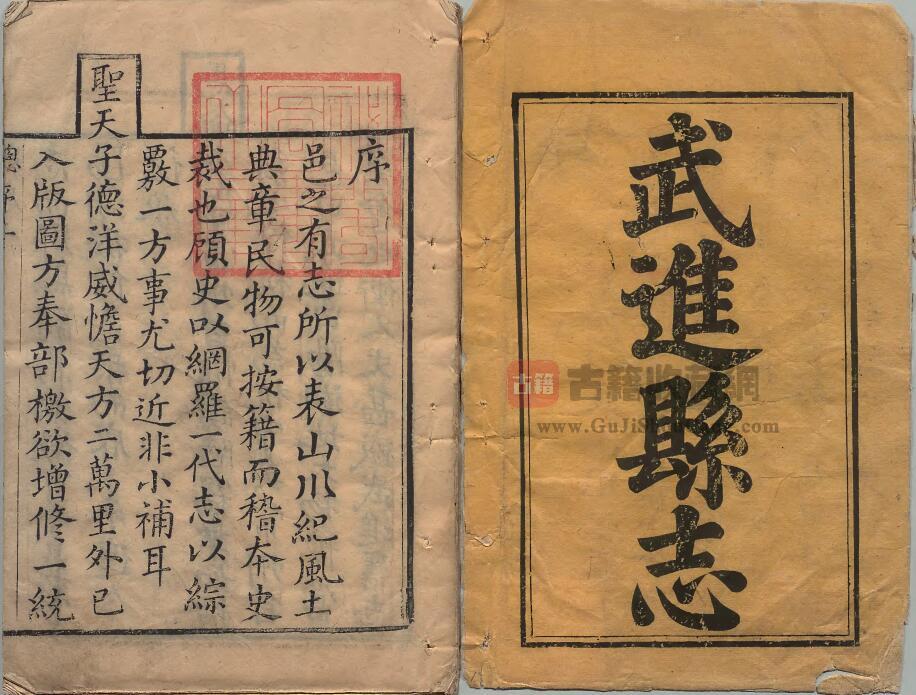 武進縣志
古籍
古籍收藏網
序
邑之有志所以表山川紀風土
典章民物可按籍而稽本史
裁也顧史以網羅一代志以綜
覈一方事尤切近非小補耳
聖天子德洋威憺天方二萬里外已
入版圖方奉部檄欲增修一統
總序 一